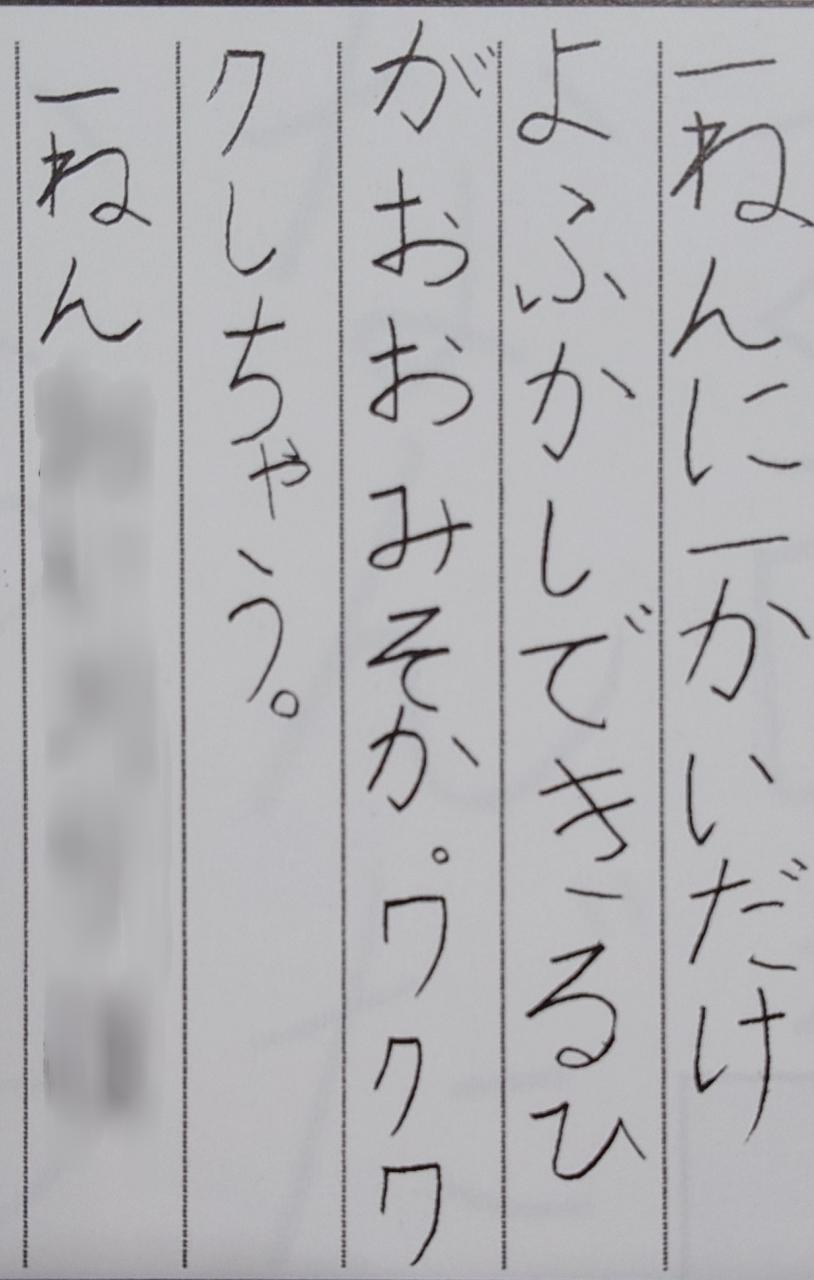 一ねんに一かいだけ
よふかしできるひ
がおおみそか。ワクワ
クしちゃう。
一ねん